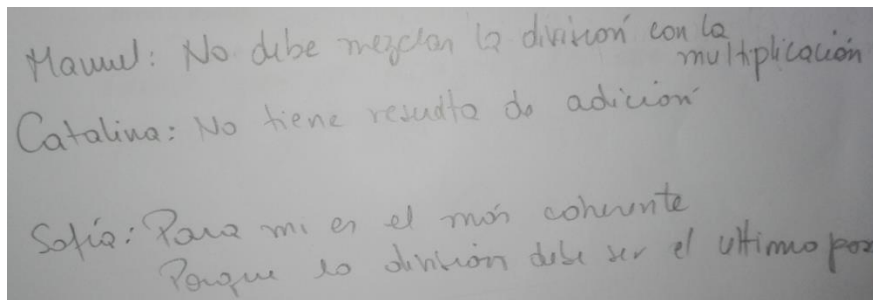 Manuel: No debe mezclar la división con la
multiplicación
Catalina: No tiene resulta do adición
Sofía: Para mi es el más coherente
Porque la división debe ser el ultimo por